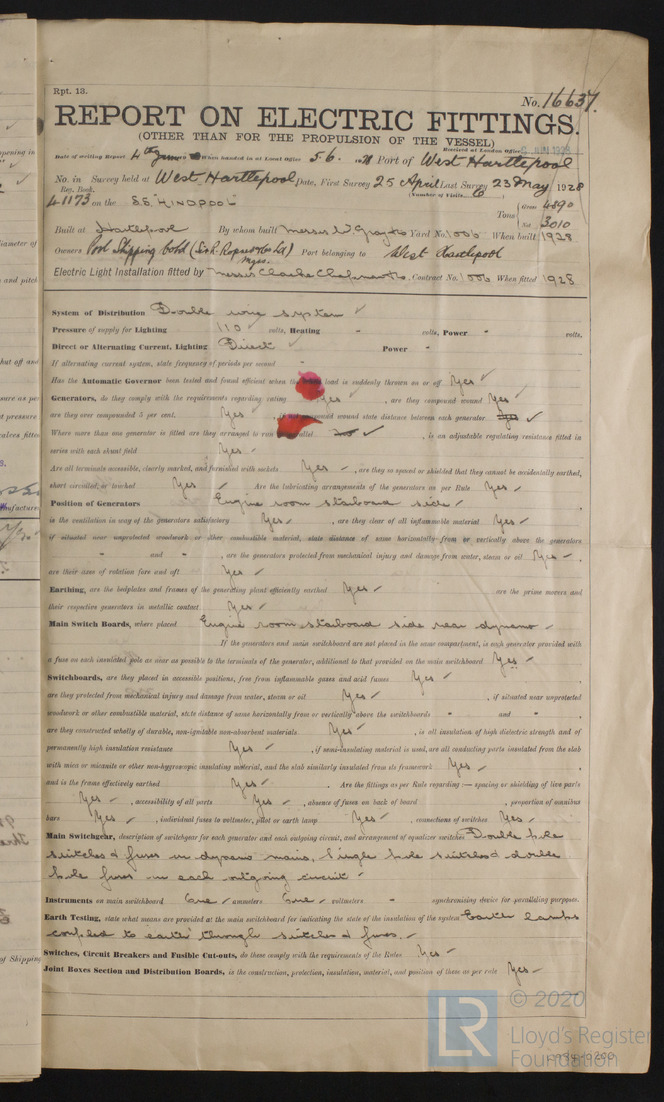 Rpt. 13.
No. 16637.
REPORT ON ELECTRIC FITTINGS.
(OTHER THAN FOR THE PROPULSION OF THE VESSEL)
Received at London Office 6 JUN 1928
Date of writing Report 4th June When handed in at Local Office 5.6. 1928 Port of West Hartlepool
No. in Survey held at West Hartlepool Date, First Survey 25 April Last Survey 23 May 1928
Reg. Book. (Number of Visits 6)
41173 on the S.S. "HINDPOOL" Tons { Gross 4890
Net 3010
Built at Hartlepool By whom built Messrs W. Gray & Co Yard No. 1006 When built 1928
Owners Pool Shipping Co Ltd (Sir R. Ropner & Co Ltd) Mgrs. Port belonging to West Hartlepool
Electric Light Installation fitted by Messrs Clarke Chapman & Co. Contract No. 1006 When fitted 1928
System of Distribution Double wire system ✓
Pressure of supply for Lighting 110 ✓ volts, Heating " volts, Power " volts.
Direct or Alternating Current, Lighting Direct ✓ Power "
If alternating current system, state frequency of periods per second "
Has the Automatic Governor been tested and found efficient when the load is suddenly thrown on or off Yes ✓
Generators, do they comply with the requirements regarding rating Yes ✓, are they compound wound Yes ✓
are they over compounded 5 per cent. Yes ✓, if not compound wound state distance between each generator ✓
Where more than one generator is fitted are they arranged to run in parallel ✓, is an adjustable regulating resistance fitted in
series with each shunt field Yes ✓
Are all terminals accessible, clearly marked, and furnished with sockets Yes ✓, are they so spaced or shielded that they cannot be accidentally earthed,
short circuited, or touched Yes ✓ Are the lubricating arrangements of the generators as per Rule Yes ✓
Position of Generators Engine room starboard side ✓
is the ventilation in way of the generators satisfactory Yes ✓, are they clear of all inflammable material Yes ✓
if situated near unprotected woodwork or other combustible material, state distance of same horizontally from or vertically above the generators
" and ", are the generators protected from mechanical injury and damage from water, steam or oil Yes ✓,
are their axes of rotation fore and aft Yes ✓
Earthing, are the bedplates and frames of the generating plant efficiently earthed Yes ✓ are the prime movers and
their respective generators in metallic contact Yes ✓
Main Switch Boards, where placed Engine room starboard side near dynamo ✓
If the generators and main switchboard are not placed in the same compartment, is each generator provided with
a fuse on each insulated pole as near as possible to the terminals of the generator, additional to that provided on the main switchboard Yes ✓
Switchboards, are they placed in accessible positions, free from inflammable gases and acid fumes Yes ✓,
are they protected from mechanical injury and damage from water, steam or oil Yes ✓, if situated near unprotected
woodwork or other combustible material, state distance of same horizontally from or vertically above the switchboards " and ",
are they constructed wholly of durable, non-ignitable non-absorbent materials Yes ✓, is all insulation of high dielectric strength and of
permanently high insulation resistance Yes ✓, if semi-insulating material is used, are all conducting parts insulated from the slab
with mica or micanite or other non-hygroscopic insulating material, and the slab similarly insulated from its framework Yes ✓
and is the frame effectively earthed Yes ✓. Are the fittings as per Rule regarding :— spacing or shielding of live parts
Yes ✓, accessibility of all parts Yes ✓, absence of fuses on back of board , proportion of omnibus
bars Yes ✓, individual fuses to voltmeter, pilot or earth lamp Yes ✓, connections of switches Yes ✓.
Main Switchgear, description of switchgear for each generator and each outgoing circuit, and arrangement of equalizer switches Double pole
switches & fuses in dynamo mains, Single pole switches & double
pole fuses in each outgoing circuit ✓
Instruments on main switchboard One ✓ ammeters One ✓ voltmeters " synchronising device for paralleling purposes.
Earth Testing, state what means are provided at the main switchboard for indicating the state of the insulation of the system Earth lamps
coupled to earth through switches & fuses. ✓
Switches, Circuit Breakers and Fusible Cut-outs, do these comply with the requirements of the Rules Yes ✓
Joint Boxes Section and Distribution Boards, is the construction, protection, insulation, material, and position of them as per rule Yes ✓
LR
© 2020
Lloyd's Register
Foundation